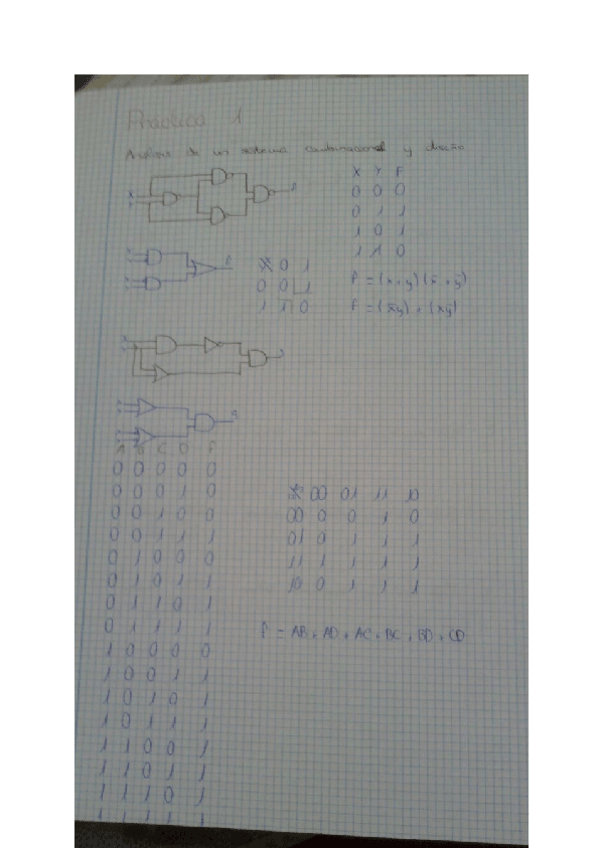 Práctica 1
Análisis de un sistema combinacional y diseño
X Y F
0 0 0
0 1 1
1 0 1
1 1 0
0 1
0 0 1
1 1 0
F = (x+y)(x̄+ȳ)
F = (x̄y)+(xȳ)
A B C D F
0 0 0 0 0
0 0 0 1 0
0 0 1 0 0
0 0 1 1 1
0 1 0 0 0
0 1 0 1 1
0 1 1 0 1
0 1 1 1 1
1 0 0 0 0
1 0 0 1 1
1 0 1 0 1
1 0 1 1 1
1 1 0 0 1
1 1 0 1 1
1 1 1 0 1
1 1 1 1 1
00 01 11 10
00 0 0 1 0
01 0 1 1 1
11 1 1 1 1
10 0 1 1 1
F = AB + AD + AC + BC + BD + CD